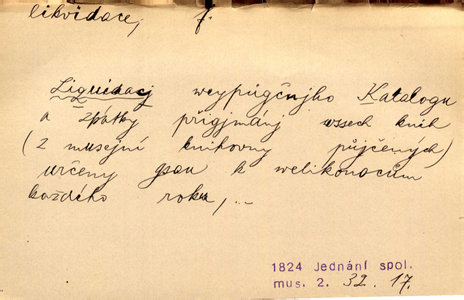 likvidace, f.
Liquidacj weypůgčnjho Katalogu
a zpátky přigjmánj wssech knih
(z musejní knihovny půjčených)
určeny gsau k welikonocům
každého roku, ...
1824 Jednání spol.
mus. 2. 32. 17.